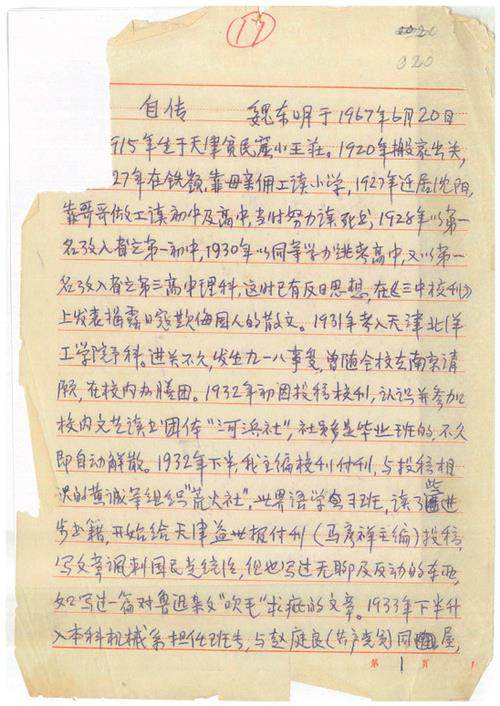 17
020
020
自传 魏东明于1967年6月20日
915年生于天津贫民窟小王莊。1920年搬家出关,
27年在铁嶺,靠母亲佣工读小学,1927年迁居沈阳,
靠哥哥做工读初中及高中,当时努力读死书,1928年以第一
名攷入省立第一初中,1930年以同等学力跳考高中,又以第一
名攷入省立第三高中理科,这时已有反日思想,在《三中校刊》
上发表揭露日寇欺侮国人的散文。1931年考入天津北洋
工学院予科。进关不久,发生九一八事变,曾随全校去南京请
愿,在校内办膳团。1932年初因投稿校刊,认识并参加
校内文艺读书团体“河浜社”,社员多是毕业班的,不久
即自动解散。1932年下半我主编校刊付刊,与投稿相
识的黄诚等组织“荒火社”,世界语学习班,读了些进
步书籍,开始给天津益世报付刊(马彦祥主编)投稿,
写文章讽刺国民党统治,但也写过无聊及反动的东西,
如写过一篇对鲁迅杂文“吹毛”求疵的文章。1933年下半升
入本科机械系担任班长,与赵庭良(共产党员)同屋,
第1页